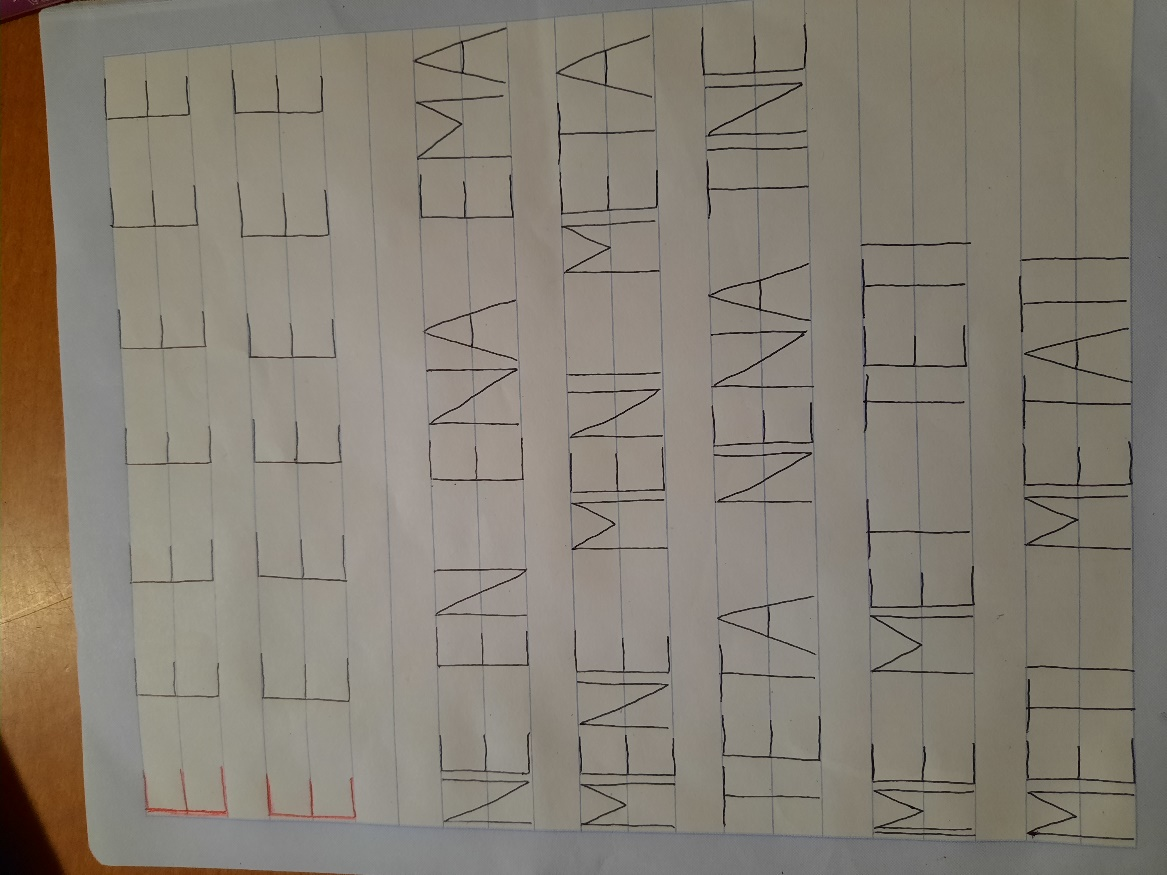 E E E E E E E
E E E E E E E
NE EN ENA EMA
MENE MENI META
TETA NENA TINE
ME MET TETI
METI METATI